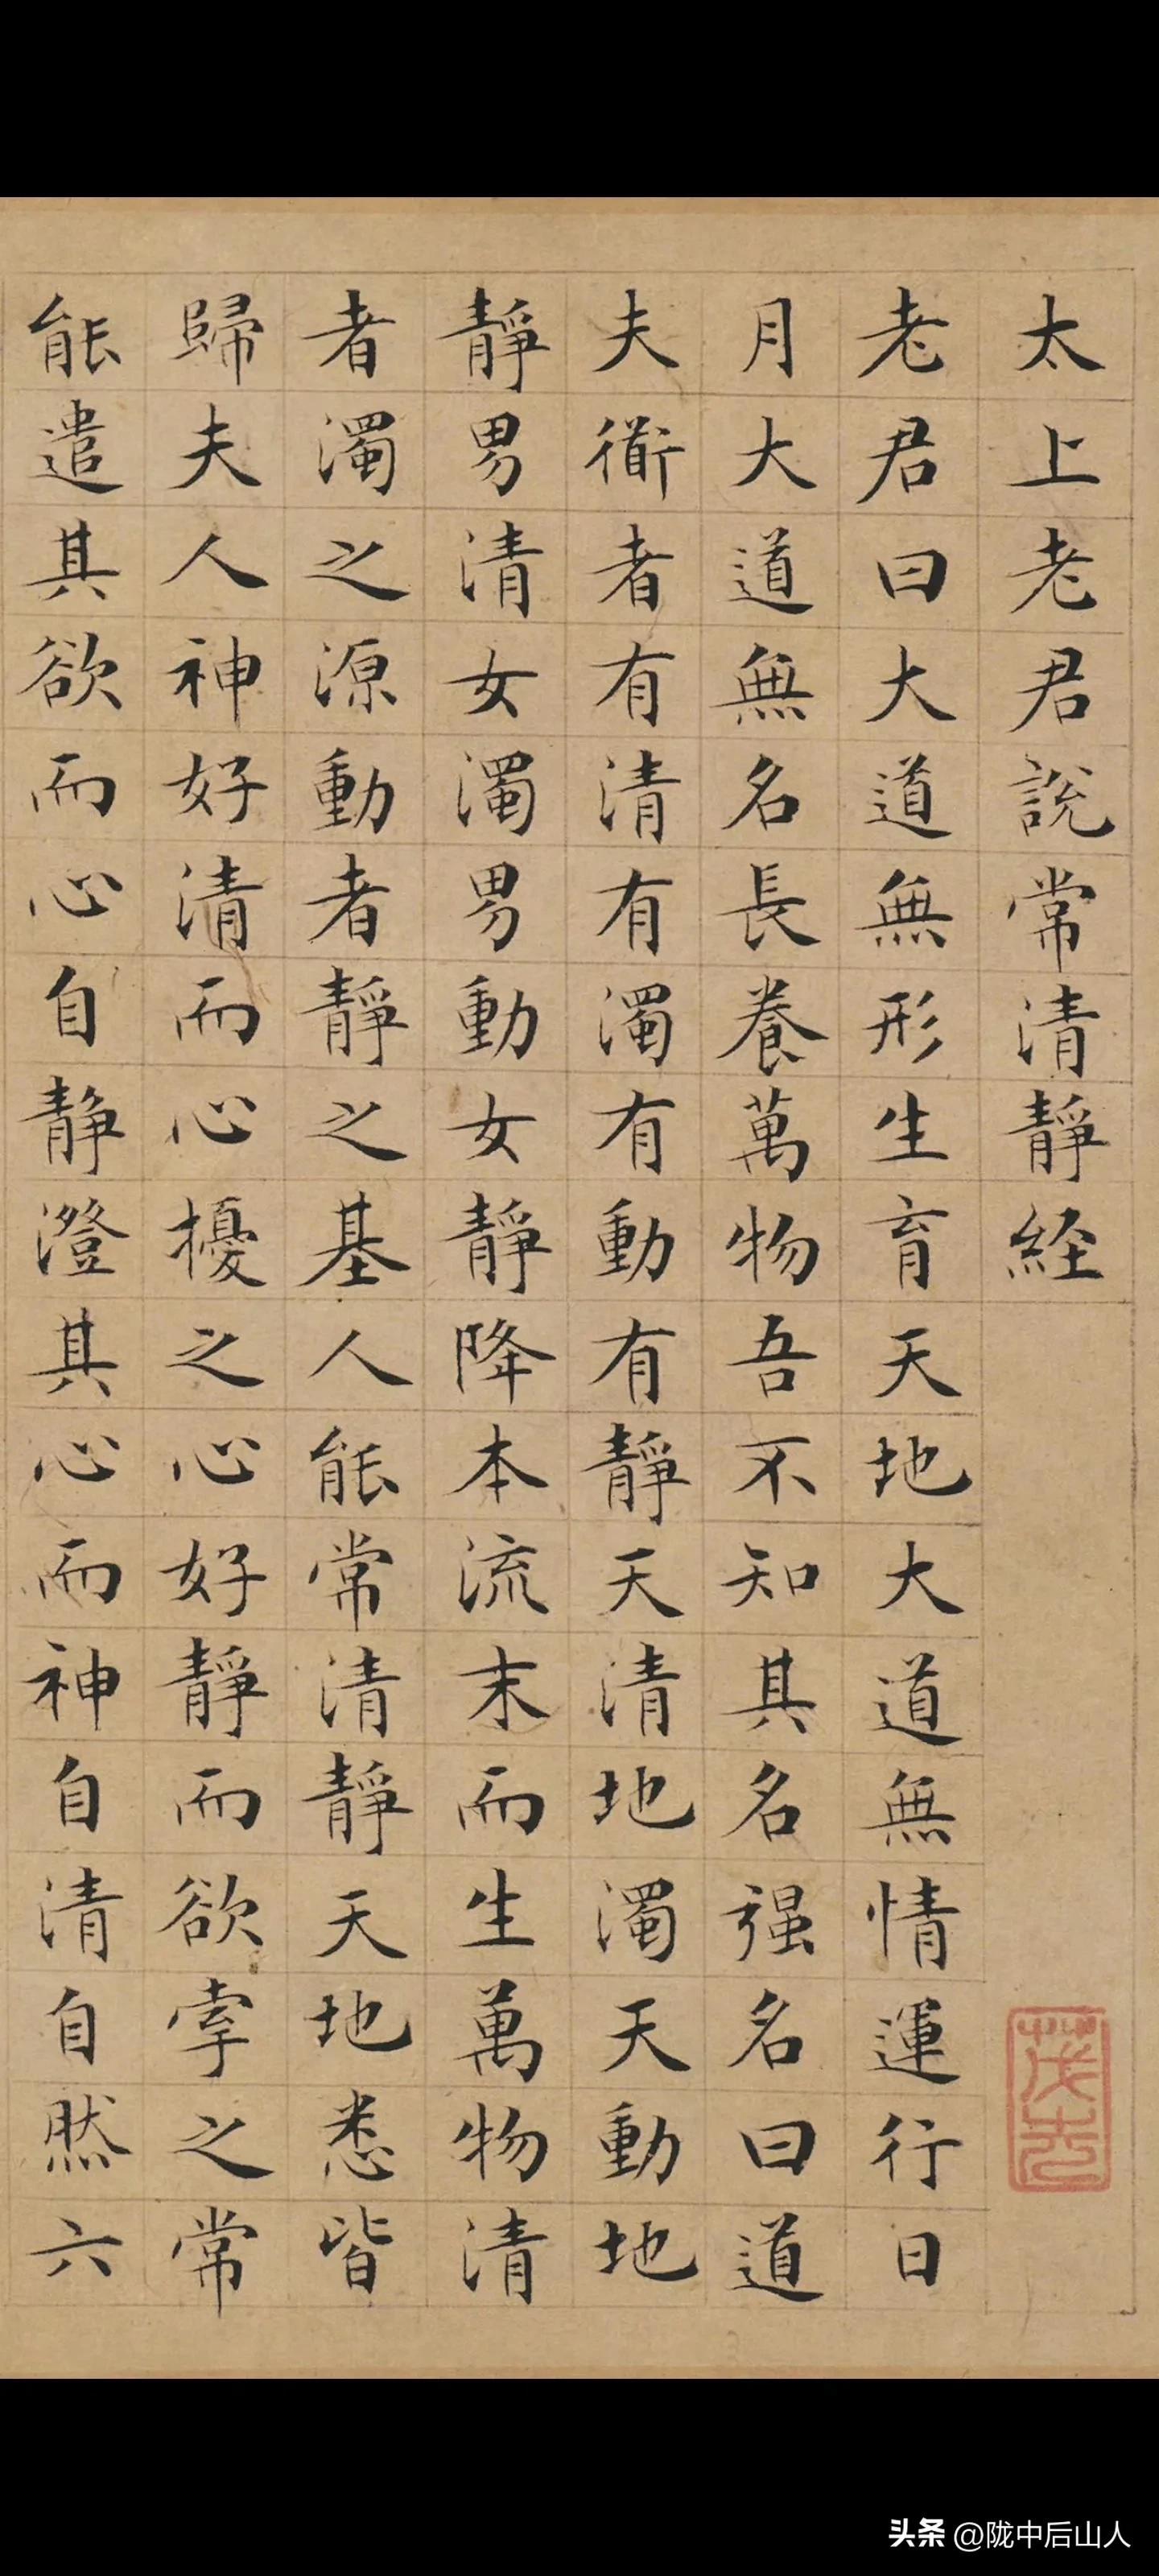 太上老君說常清靜経
老君曰大道無形生育天地大道無情運行日
月大道無名長養萬物吾不知其名强名曰道
夫衜者有清有濁有動有靜天清地濁天動地
靜男清女濁男動女靜降本流末而生萬物清
者濁之源動者靜之基人能常清靜天地悉皆
歸夫人神好清而心擾之心好靜而欲牽之常
能遣其欲而心自靜澄其心而神自清自然六
頭条 @陇中后山人